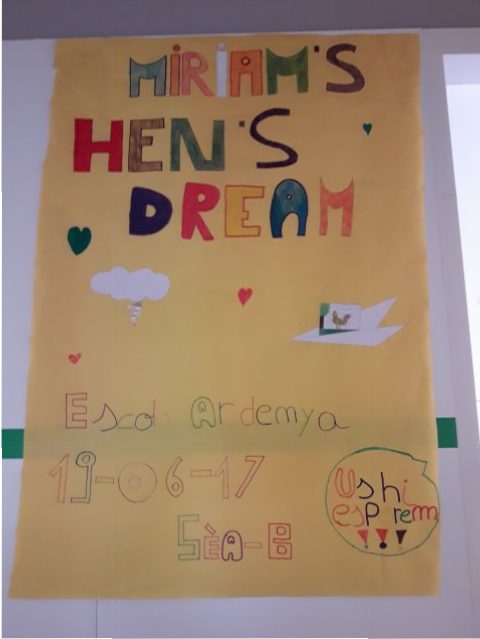 MIRIAM'S
HEN'S
DREAM
Escola Ardenya
19-06-17
Us hi
esperem
!!!
5èA-B